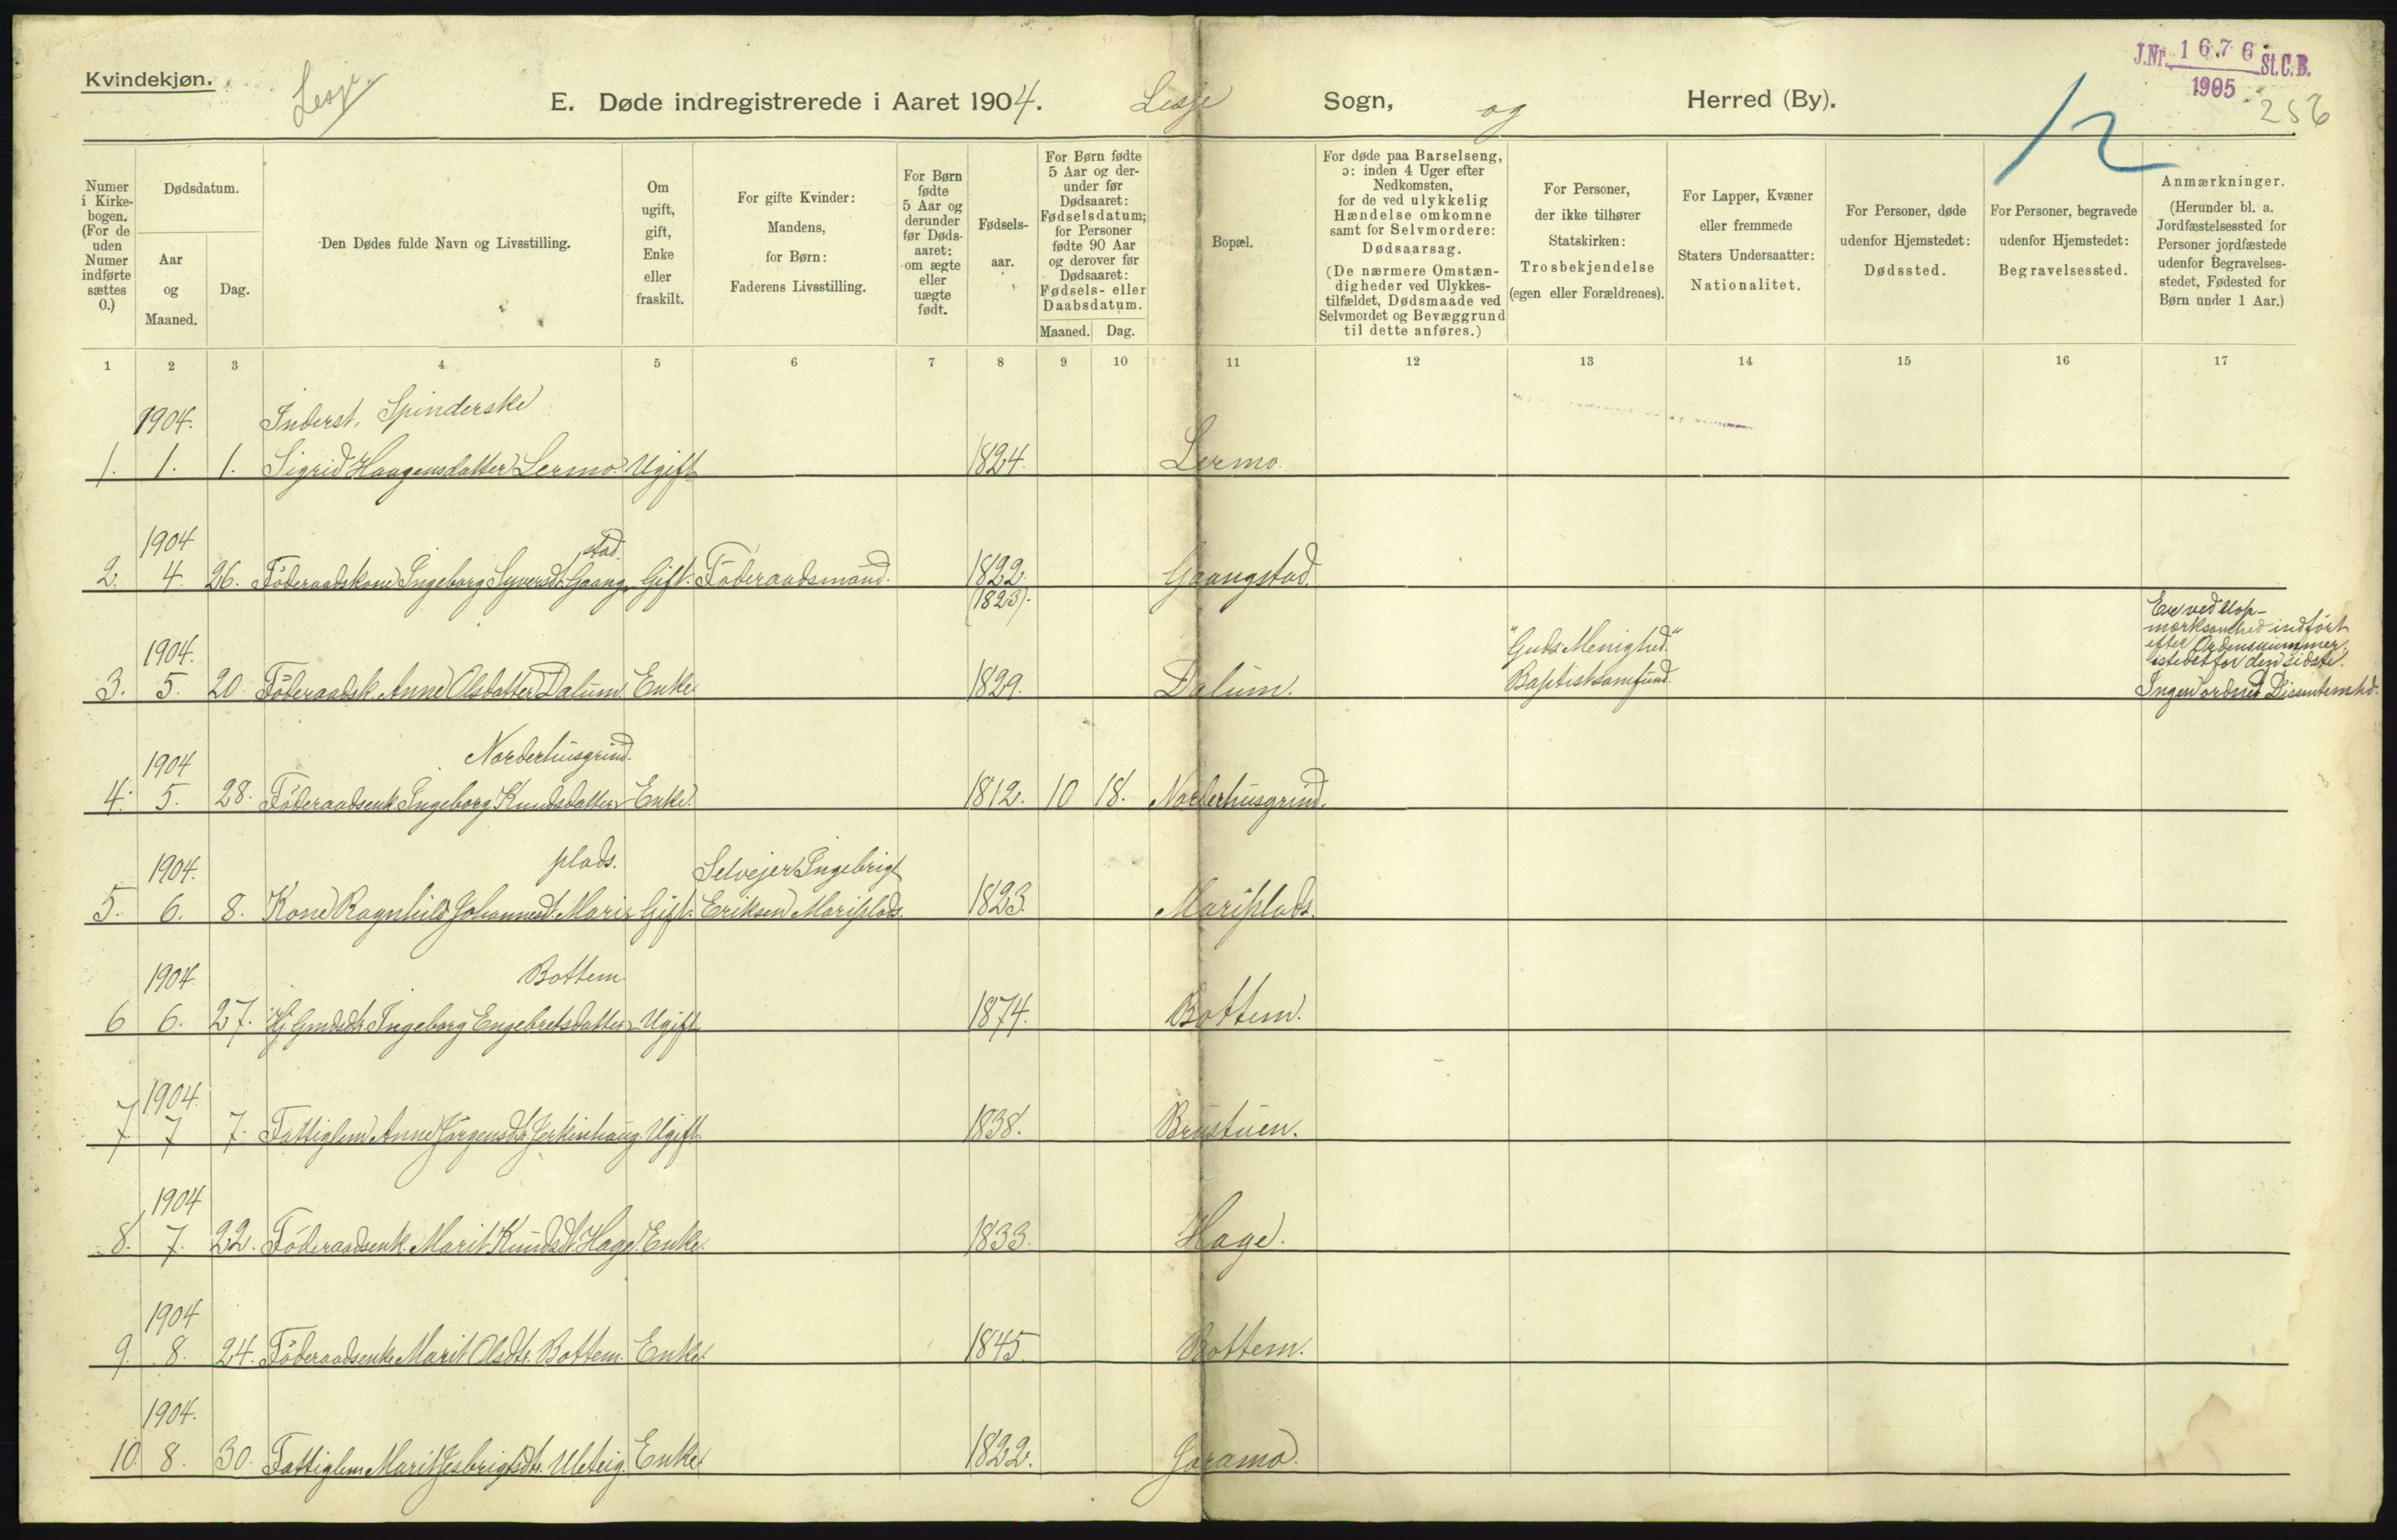 Kvindekjøn.
Lesje
E. Døde indregistrerede i Aaret 1904. Lesje Sogn, og Herred (By).
J.Nr. 1676 St.C.B.
1905
256
12
Numer i Kirkebogen. (For de uden Numer indførte sættes 0.)
Dødsdatum.
Aar og Maaned.
Dag.
Den Dødes fulde Navn og Livsstilling.
Om ugift, gift, Enke eller fraskilt.
For gifte Kvinder: Mandens, for Børn: Faderens Livsstilling.
For Børn fødte 5 Aar og derunder før Dødsaaret: om ægte eller uægte født.
Fødselsaar.
For Børn fødte 5 Aar og derunder før Dødsaaret: Fødselsdatum; for Personer fødte 90 Aar og derover før Dødsaaret: Fødsels- eller Daabsdatum.
Maaned. Dag.
Bopæl.
For døde paa Barselseng, ɔ: inden 4 Uger efter Nedkomsten, for de ved ulykkelig Hændelse omkomne samt for Selvmordere: Dødsaarsag.
(De nærmere Omstændigheder ved Ulykkestilfældet, Dødsmaade ved Selvmordet og Bevæggrund til dette anføres.)
For Personer, der ikke tilhører Statskirken: Trosbekjendelse (egen eller Forældrenes).
For Lapper, Kvæner eller fremmede Staters Undersaatter: Nationalitet.
For Personer, døde udenfor Hjemstedet: Dødssted.
For Personer, begravede udenfor Hjemstedet: Begravelsessted.
Anmærkninger. (Herunder bl. a. Jordfæstelsessted for Personer jordfæstede udenfor Begravelsesstedet, Fødested for Børn under 1 Aar.)
1 2 3 4 5 6 7 8 9 10 11 12 13 14 15 16 17
1904. Inderst, Spinderske
1. 1. 1. Sigrid Haagensdatter Lermo. Ugift 1824. Lermo.
1904 stad.
2. 4. 26. Föderaadskone Ingeborg Syversdt. Gaang Gift. Föderaadsmand. 1822. Gaangstad.
(1823).
1904. "Guds Menighed."
3. 5. 20. Föderaadsk. Anne Olsdatter Dalum. Enke 1829. Dalum. Baptistsamfund.
Er ved Uop-
mærksomhed indført
efter Ordensnummer
istedetfor den sidste.
Ingen ordnet Dissentermhd.
1904 Norderhusgrind.
4. 5. 28. Föderaadsenk. Ingeborg Knudsdatter Enke. 1812. 10 18. Norderhusgrind.
1904. plads. Selvejer Ingebrigt
5. 6. 8. Kone Ragnhild Johannesdt. Mari Gift. Eriksen Mariplads. 1823. Mariplads.
1904. Bottem.
6 6. 27. Hj. Gmdsdtr. Ingeborg Engebretsdatter Ugift 1874. Bottem.
1904.
7. 7 7. Fattiglem Anne Jörgensdtr. Jerkinhaug. Ugift. 1838. Brustuen.
1904
8. 7. 22. Föderaadsenk. Marit Knudsdt. Hage. Enke. 1833. Hage.
1904
9. 8. 24. Föderaadsenke Marit Olsdtr. Bottem. Enke. 1845. Bottem.
1904.
10. 8. 30. Fattiglem Marit Jesbrigtsdtr. Uleteig. Enke. 1822. Joramo.